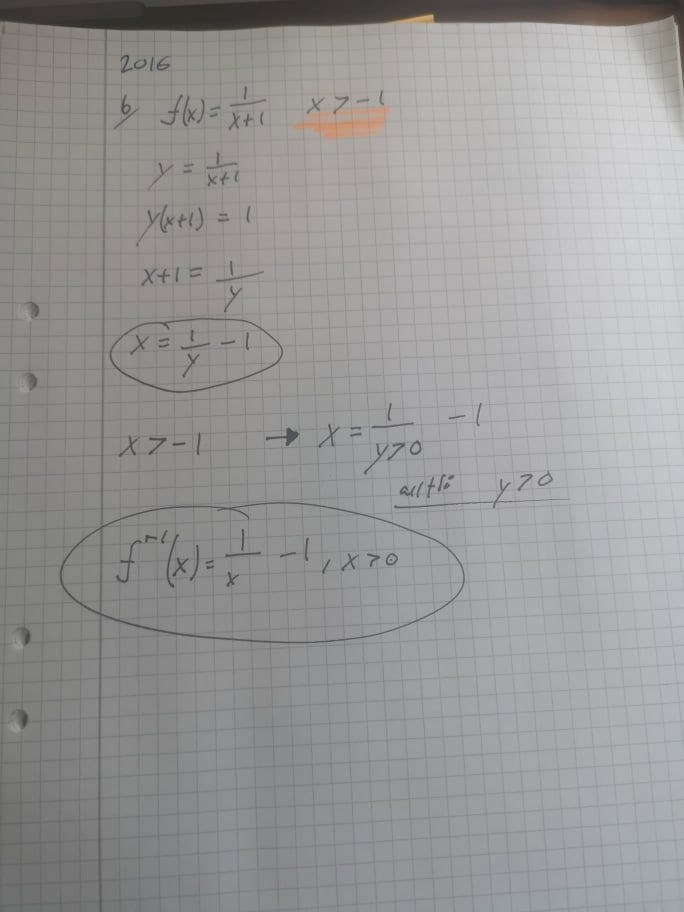 2016
b) f(x) = 1/(x+1) x > -1
y = 1/(x+1)
y(x+1) = 1
x+1 = 1/y
x = 1/y - 1
x > -1 → x = 1/(y>0) - 1
alltså y > 0
f⁻¹(x) = 1/x - 1, x > 0